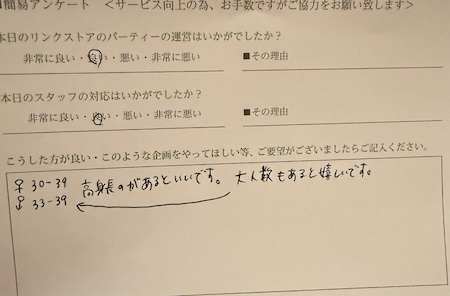 簡易アンケート ＜サービス向上の為、お手数ですがご協力をお願い致します＞
本日のリンクストアのパーティーの運営はいかがでしたか？
非常に良い・良い・悪い・非常に悪い ■その理由
本日のスタッフの対応はいかがでしたか？
非常に良い・良い・悪い・非常に悪い ■その理由
こうした方が良い・このような企画をやってほしい等、ご要望がございましたらご記入ください。
♀ 30-39 高身長のがあるといいです。 大人数もあると嬉しいです。
♂ 33-39